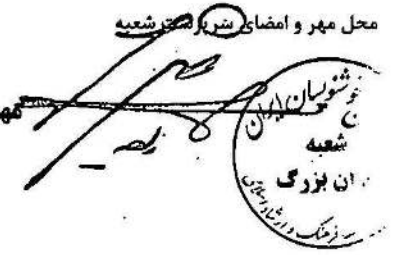 محل مهر و امضای سرپرست شعبه
خوشنویسان ایران
شعبه
ان بزرگ
فرهنگ و ارشاد اسلامی